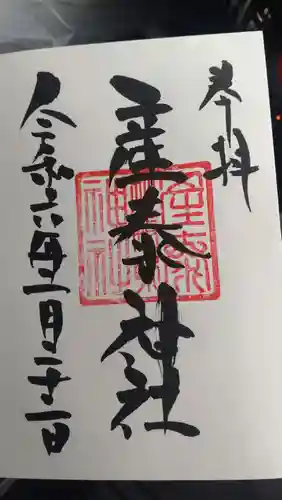 奉拝
産泰神社
産泰神社
令和六年一月二十一日